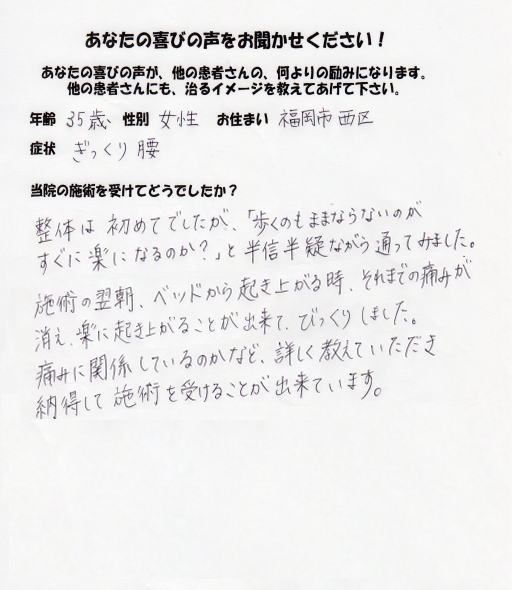 あなたの喜びの声をお聞かせください！
あなたの喜びの声が、他の患者さんの、何よりの励みになります。
他の患者さんにも、治るイメージを教えてあげて下さい。
年齢 35歳 性別 女性 お住まい 福岡市西区
症状 ぎっくり腰
当院の施術を受けてどうでしたか？
整体は初めてでしたが、「歩くのもままならないのが
すぐに楽になるのか？」と半信半疑ながら通ってみました。
施術の翌朝、ベッドから起き上がる時、それまでの痛みが
消え、楽に起き上がることが出来て、びっくりしました。
痛みに関係しているのかなど、詳しく教えていただき
納得して施術を受けることが出来ています。